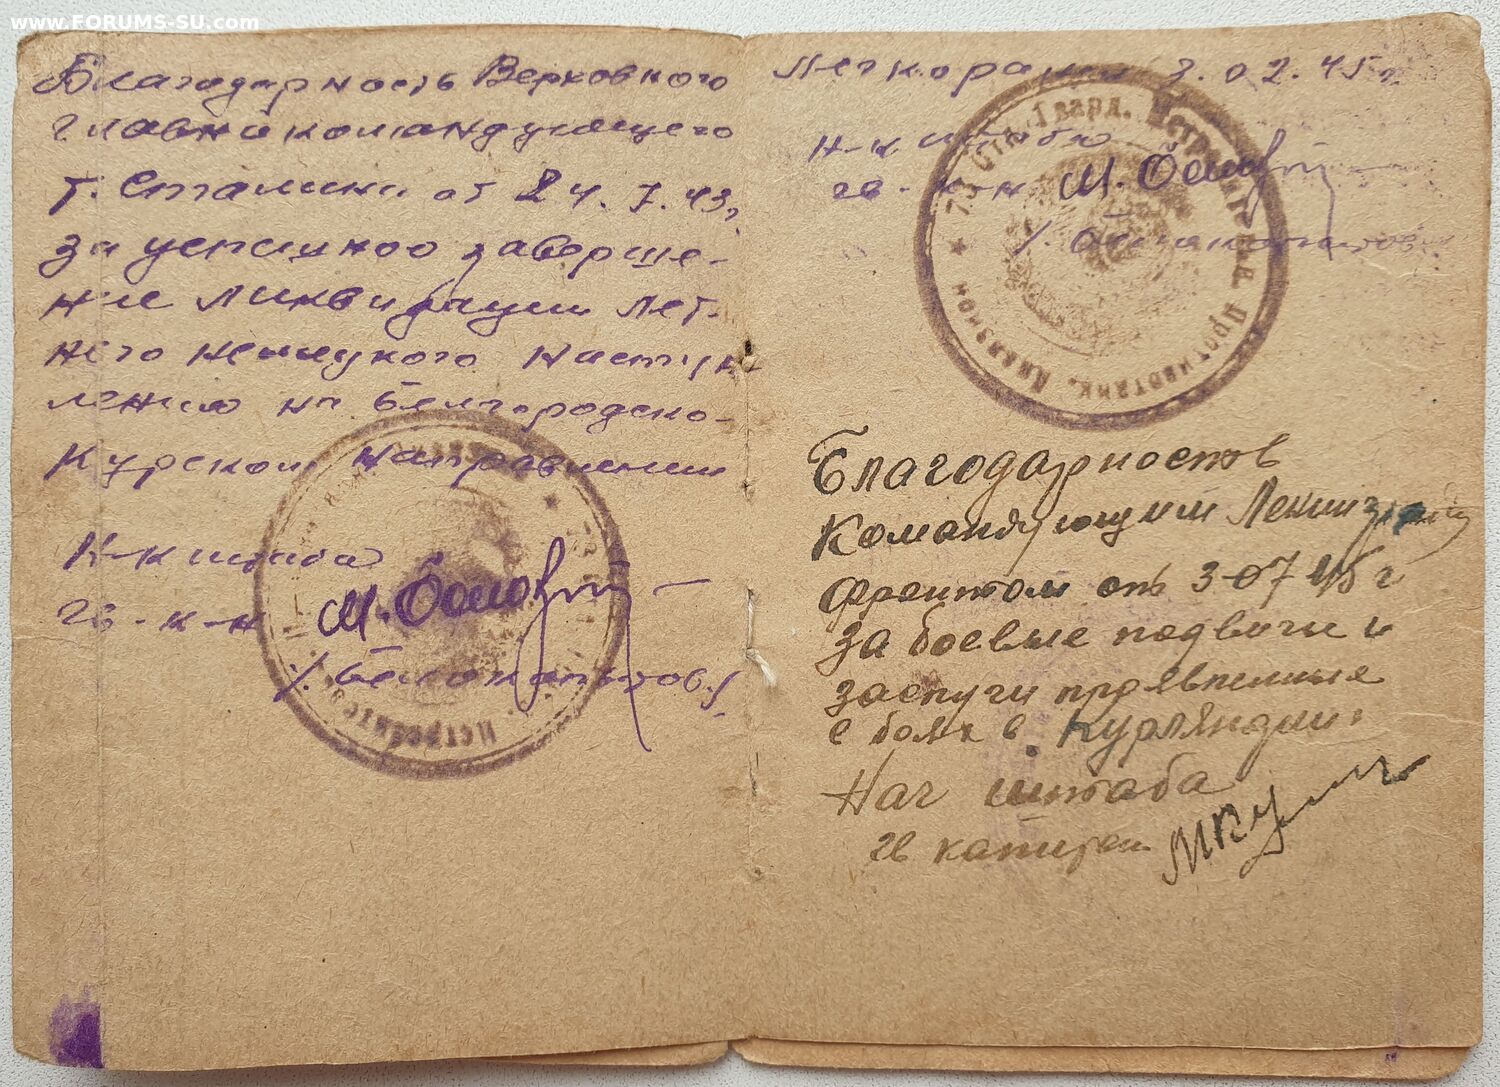 www.FORUMS-SU.com
Благодарность Верховного
главнокомандующего
т. Сталина от 24.7.43г
за успешное заверше-
ние ликвидации лет-
него немецкого наступ-
ления на Белгородско-
Курском направлении
Н-к штаба
гв. к-н
/. Белокопытов./
3.02.45г
Н-к штаба
гв. к-н
75 Гвард. Истребительн. Противотанк. Дивизион
Благодарность
Командующим
фронтом от 3-07 45г
За боевые подвиги и
заслуги проявленные
в боях в Курляндии
Нач штаба
гв капитан